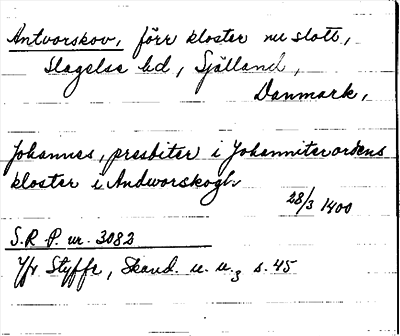 Antvorskov, förr kloster nu slott,
Slagelse hd, Själland,
Danmark,
Johannes, presbiter i Johanniterordens
kloster i Andworskogh
28/3 1400
S.R.P. nr. 3082
Jfr Styffe, Skand. u. u., s. 45